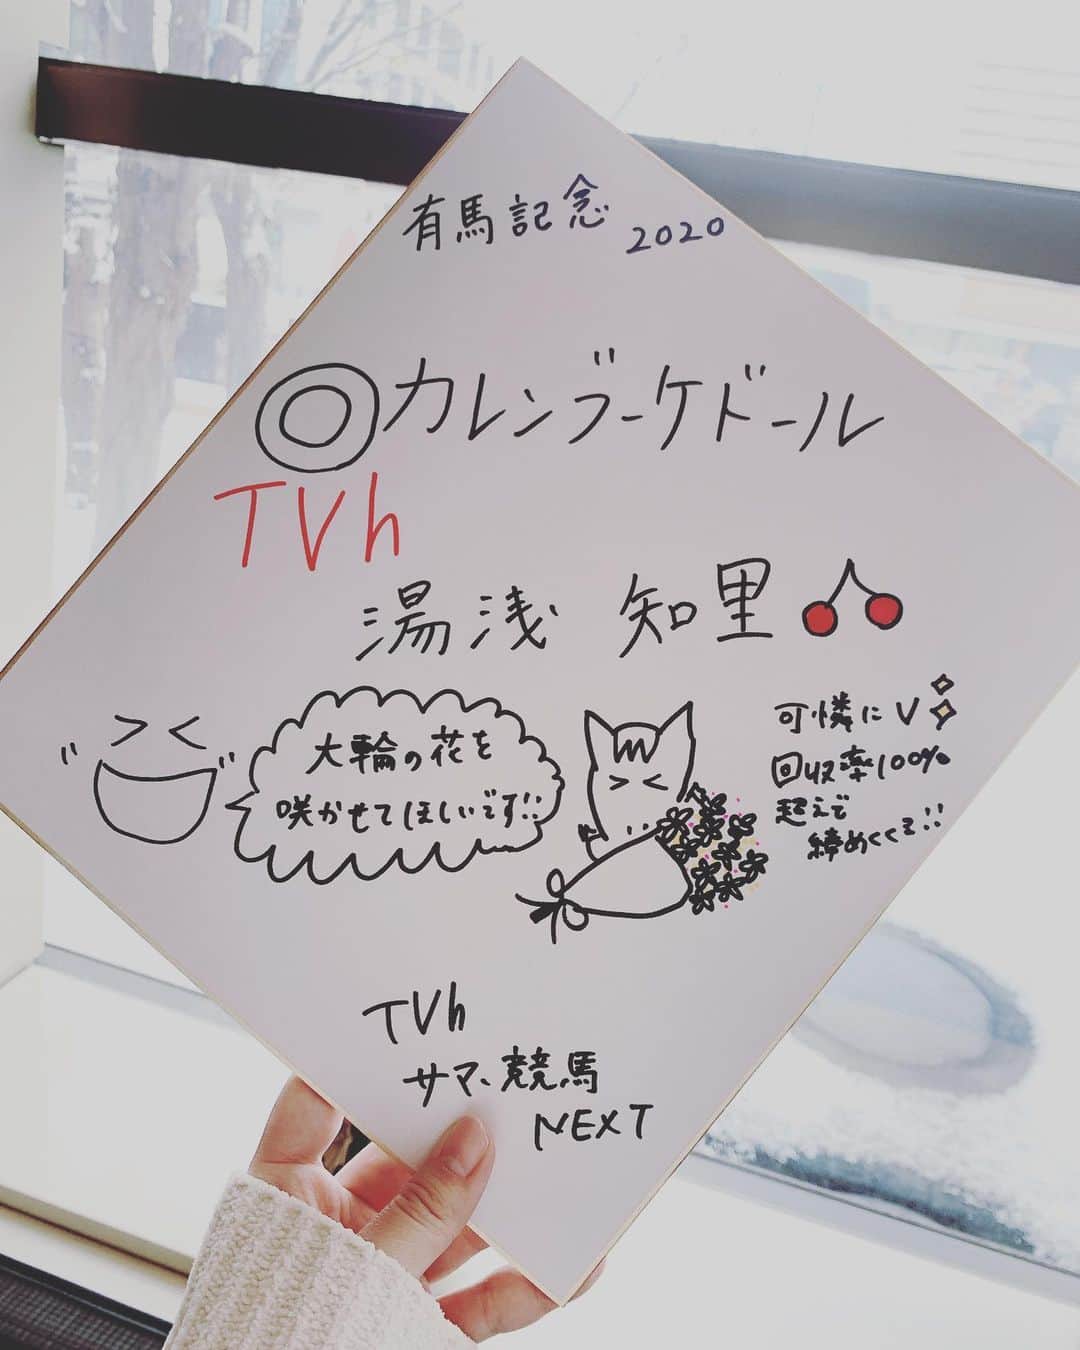 有馬記念 2020
◎カレンブーケドール
TVh
湯浅 知里
大輪の花を
咲かせてほしいです!!
可憐にV
回収率100%
超えで
締めくくる!!
TVh
サマ、競馬
NEXT